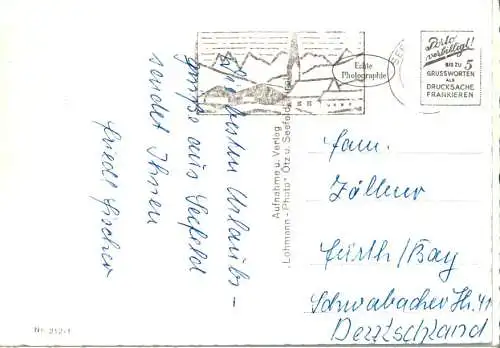 Die besten Urlaubs-
grüße aus Seefeld
sendet Ihnen
Friedl Fischer
Echte
Photographie
SEE
Porto
verbilligt!
BIS ZU 5
GRUSSWORTEN
ALS
DRUCKSACHE
FRANKIEREN
Aufnahme u. Verlag
"Lohmann-Photo" Ötz u. Seefeld
Fam.
Zöllner
Fürth/Bay
Schwabacher Str. 41
Deutschland
Nr. 212/1